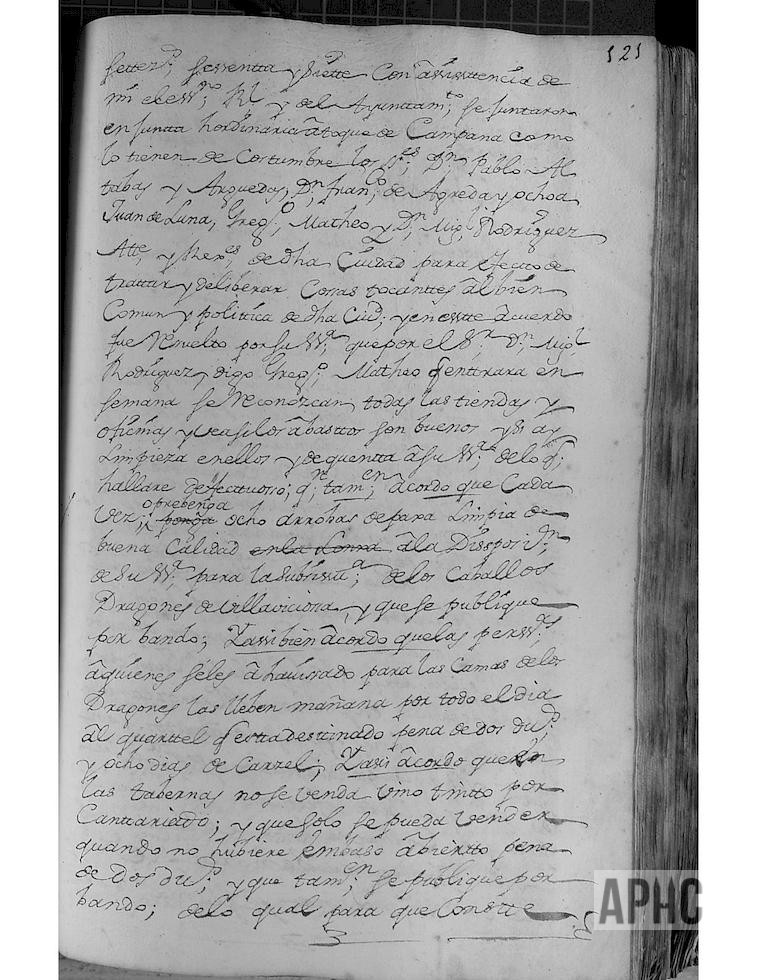 121
settez.s; sessentta y Siette Con assisttencia de
mi el ess.no; Rl y del Ayunttam.to; se Juntaron
en Junta hordinaria a toque de Campana como
lo tienen de Costumbre los S.res; D.n Pablo Al
tabas y Arquedas; D.n Fran.co; de Agreda y ochoa
Juan de Luna, Greg.o; Matheo y D.n Mig.l Rodriguez
Atte, y Rex.es; de dha Ciudad para efecto de
trattar y deliberar Cossas tocanttes al bien
Comun y polittica de dha Ciud; y en estte acuerdo
fue Resuelto por su SS.a; que por el S.r; D.n Mig.l
Rodriguez, digo Greg.o; Matheo q entrara en
semana se Reconozcan todas las tiendas y
oficinas y vea si los abastos son buenos y si ay
Limpieza en ellos y de quentta a su SS.a; de lo q;
hallare defectuosso; q.ne; tam.en; acordo que Cada
vez; o prebenga
ponga ocho arrobas de para Limpia de
buena Calidad en la Lonxa a la Disposiz.on;
de Su SS.a; para la Subsisti.a; de los Caballos
Dragones de Villaviciosa, y que se publique
por bando; Y assi bien acordo que las perss.as
a quienes se les a havisado para las Camas de los
Dragones las lleben mañana por todo el dia
al quarttel q estta desttinado pena de dos du.s;
y ocho dias de Carzel; Y assi acordo que en
las tabernas no se venda vino tintto por
Canttariado; y que solo se pueda vender
quando no hubiere embasso abiertto pena
de Dos du.s; y que tam.en se publique por
bando; de lo qual para que Constte
APHC